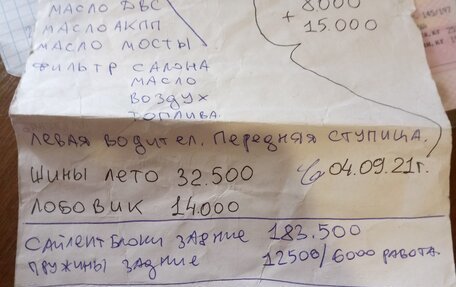 МАСЛО ДВС
МАСЛО АКПП
МАСЛО МОСТЫ
ФИЛЬТР САЛОНА
МАСЛО
ВОЗДУХ
ТОПЛИВА.
8000
+
15.000
ЛЕВАЯ ВОДИТЕЛ. ПЕРЕДНЯЯ СТУПИЦА.
ШИНЫ ЛЕТО 32.500
04.09.21г.
ЛОБОВИК 14.000
САЙЛЕНТБЛОКИ ЗАДНИЕ 183.500
ПРУЖИНЫ ЗАДНИЕ 12500/6000 РАБОТА.